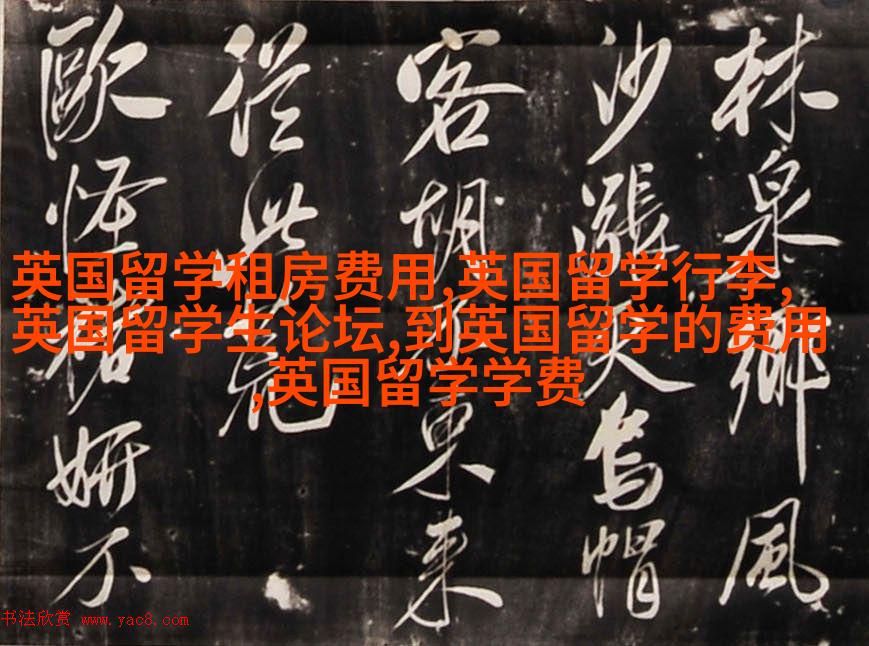 英国留学租房费用,英国留学行李,
英国留学生论坛,到英国留学的费用
,英国留学学费
林泉風
沙漲天烏帽
客胡不東來
從此荒
歐怪褚妍不
书法欣赏 www.yac8.com